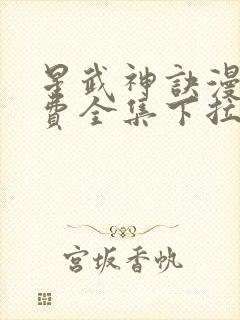 星武神訣漫
費全集下拉
宮坂香帆